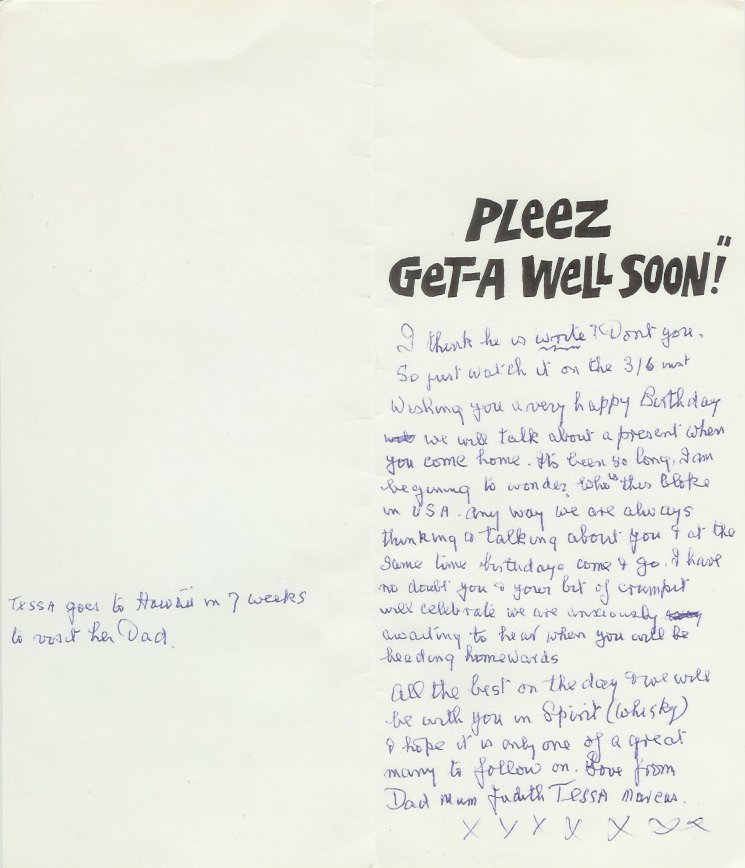 TESSA goes to Hawaii in 7 weeks
to visit her Dad.
PLEEZ
GET-A WELL SOON!"
I think he is wrote? Dont you.
So just watch it on the 3/6 inst
Wishing you a very happy Birthday
we will talk about a present when
you come home. Its been so long, I am
begining to wonder, who's this bloke
in USA. any way we are always
thinking & talking about you & at the
same time birthdays come & go. I have
no doubt you & your bit of crumpit
will celebrate we are anxiously
awaiting to hear when you will be
heading homewards
All the best on the day & we will
be with you in Spirit (Whisky)
& hope it is only one of a great
many to follow on. Love from
Dad Mum Judith TESSA Marcus.
X X X X X X X